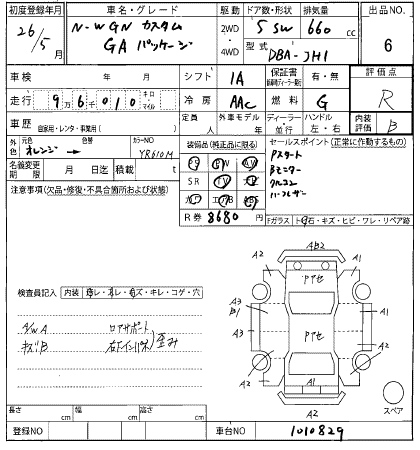 初度登録年月 車名・グレード 駆動 ドア数・形状 排気量 出品NO
26/5月 N-WGN カスタム GA パッケージ 2WD 4WD 5 SW 660 cc 6
型式 DBA-JH1
車検 年 月 シフト IA 保証書 有・無 評価点
走行 9万6千010 キロ マイル 冷房 AAC 燃料 G R
車歴 自家用・レンタ・事業用( ) 定員 人 外車モデル 年 ディーラー・並行 ハンドル 左・右 内装評価 B
外色 元色 オレンジ 色替 カラーNO YR610M
装備品(純正品に限る) セールスポイント(正常に作動するもの)
名義変更期限 月 日迄 積載 t
PS PW
SR TV
エアB ABS
Pスタート
Bモニター
クルコン
注意事項(欠品・修復・不具合箇所および状態)
R券 8680円
Fガラス トビ石・キズ・ヒビ・ワレ・リペア跡
検査員記入 内装
キレ・コゲ・穴
A/W A ロアサポート
キズB 右インパネ 歪み
A2 AB2 A1
A3 B1 A3
A2 A1 A2
A2
スペア
長さ cm 幅 cm 高さ cm
登録NO 車台NO 1010829